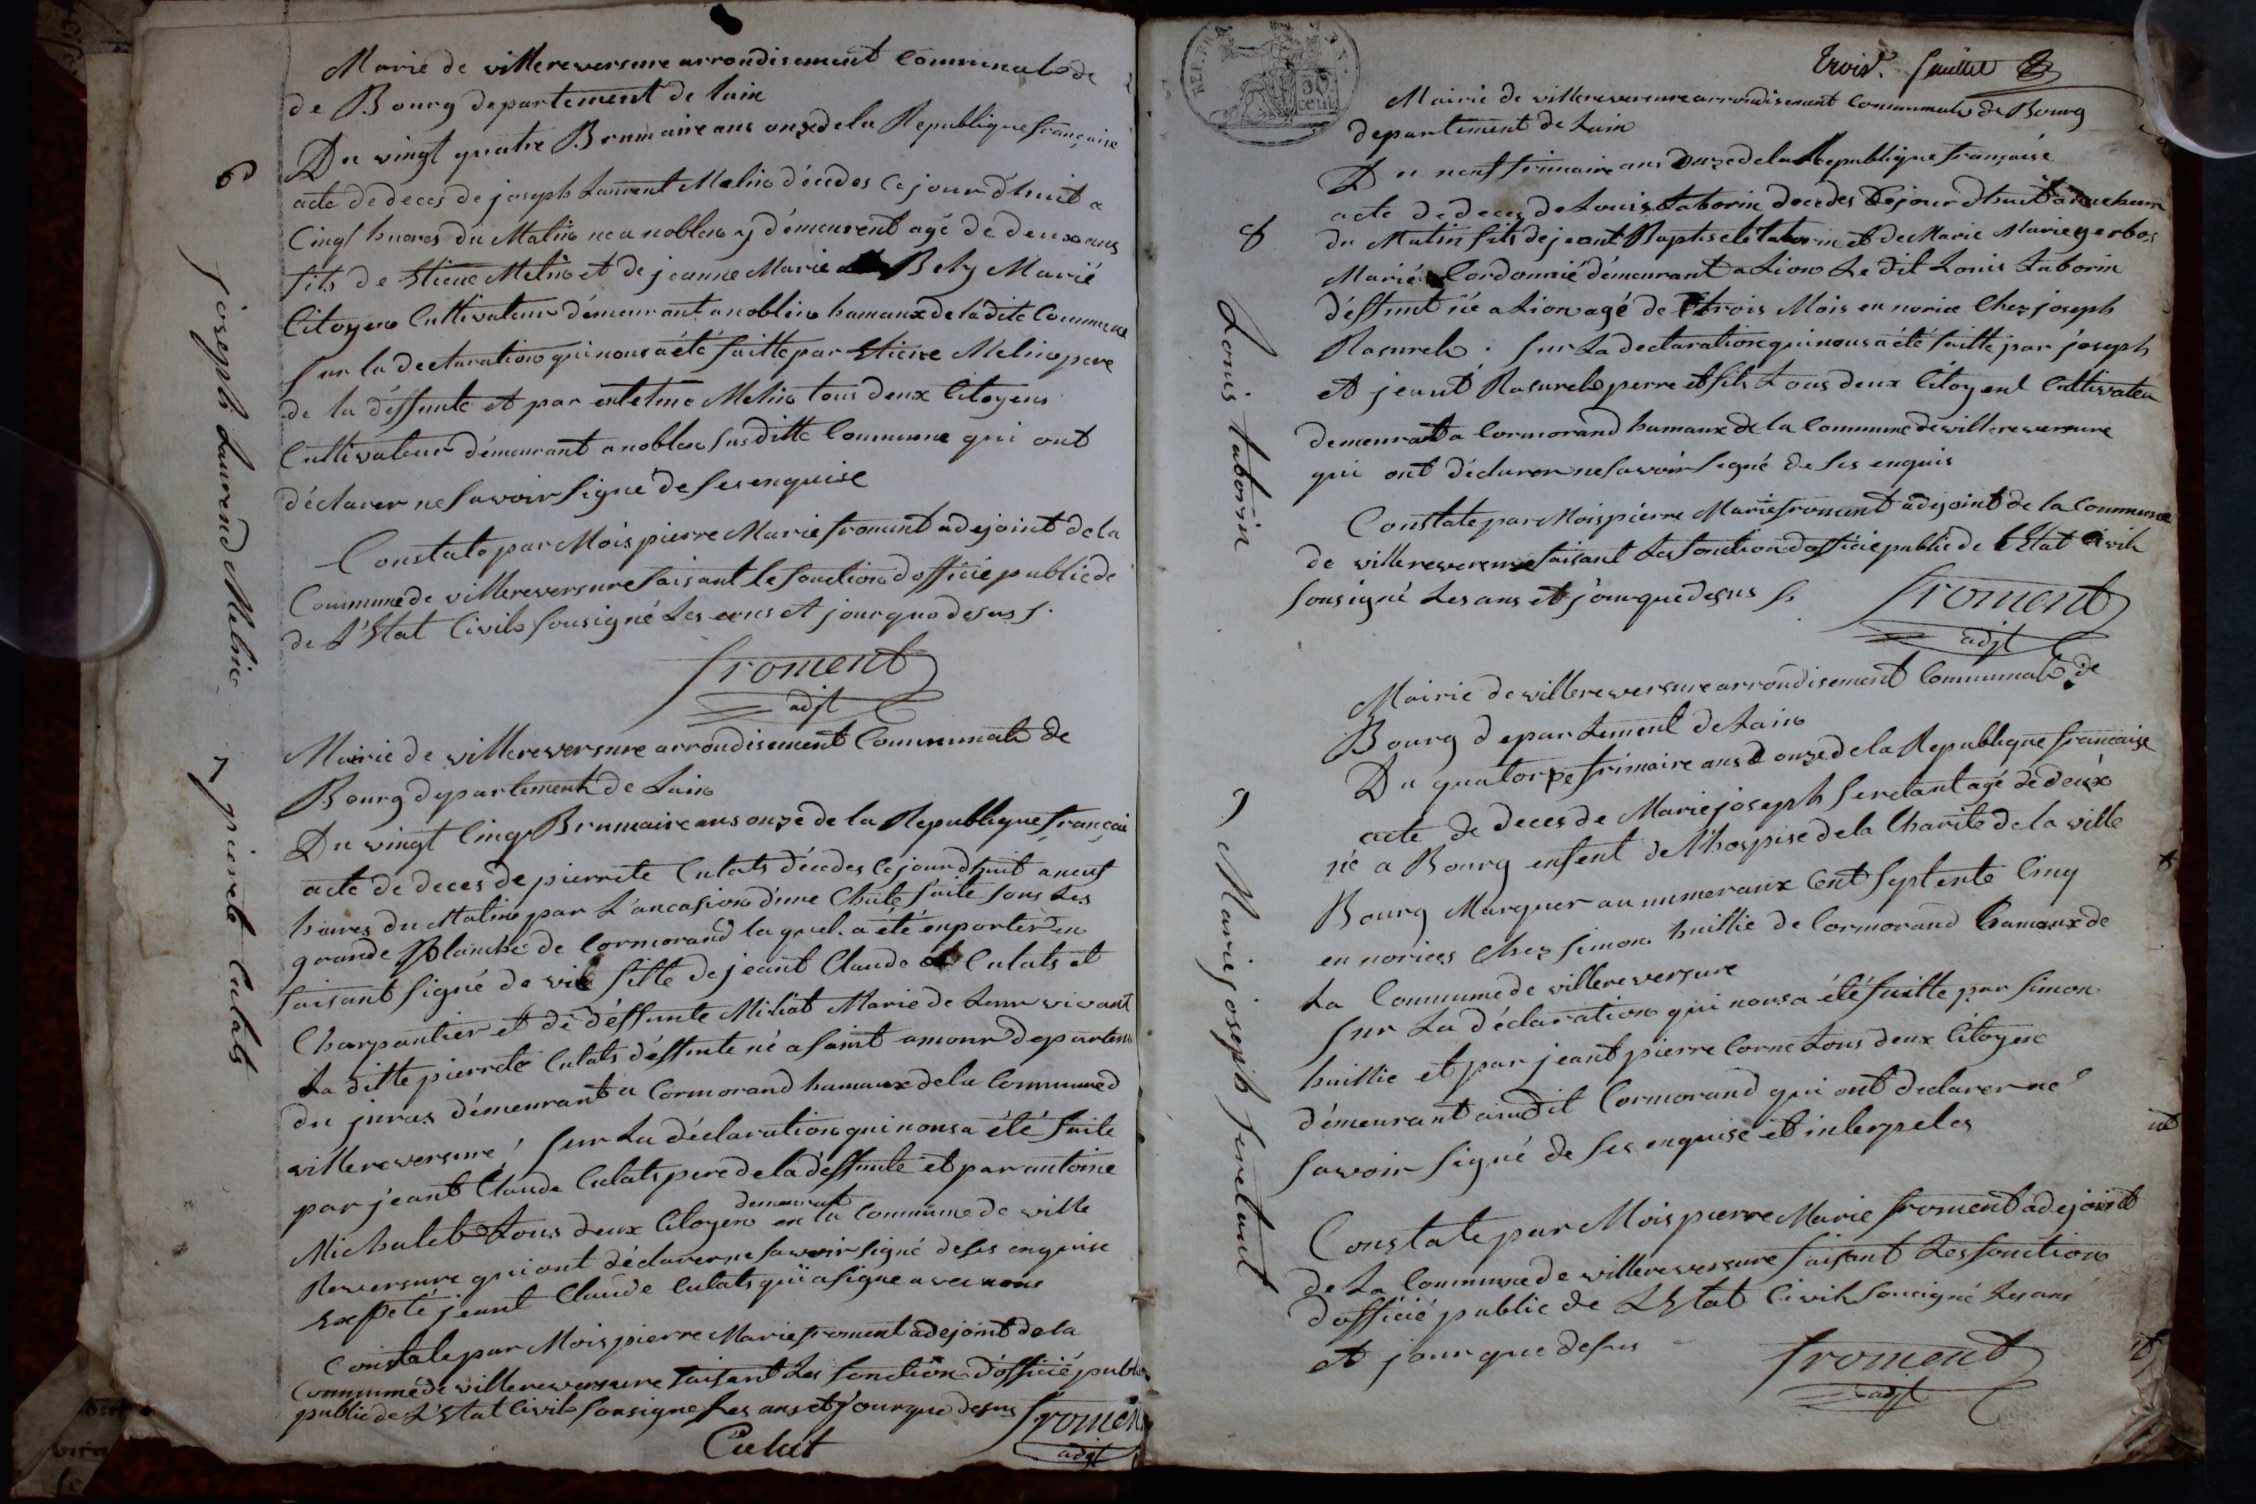 Marie de villereversure arrondisement Communals de
de Bourg departement de lain
Du vingt quatre Brumaire ans onze de la Republique française
6
acte de deces de joseph Laurent Melin décedes ce jour d'huit a
Cinq heures du Matin ne a noblen y démeurent agé de deux ans
fils de Etiene Melin et de jeanne Marie Bely Marié
Citoyen Cultivateur démeurant a noblen hamaux de la dite Commune
sur la declaration qui nous a été faitte par Etiene Melin pere
de la déffunte et par Melin tous deux Citoyens
Cultivateur démeurant a noblen susditte Commune qui ont
déclarer ne savoir signé de ses enquise
joseph Laurend Melin
Constate par Mois pierre Marie froment adejoint de la
Commune de villereversure faisant le fonction d'officié public de
de L'Etat Civils sousigné Les ans et jour que desus
froment
adjt
Mairie de villereversure arrondisement Communals de
Bourg departement de Lain
7
Du vingt Cinq Brumaire ans onze de la Republique françai
acte de deces de pierrete Culats décedes ce jour d'huit a neuf
heures du Matin par L'ancasion d'une Chute faite sous Les
grande planche de Cormorand laquel a été enporter en
faisant signé de vie fille de jeant Claude Culats et
Charpantier et de déffunte Miliat Marie de Leur vivant
La ditte pierrete Culats déffunte né a saint amour departem
du juras démeurant a Cormorand hamaux de la Commune d
villereversure sur La déclaration qui nous a été faite
par jeant Claude Culats pere de la déffunte et par antoine
demeurant
Michalet tous deux Citoyen en la Commune de ville
Reversure qui ont déclarer ne savoir signé de ses enquise
Exspeté jeant Claude Culats qui a signe avec nous
pierrete Culats
Constate par Mois pierre Marie froment adejoint de la
Commune de villereversure faisant Les fonction d'officié public
public de L'Etat Civils sousigne Les ans et jour que desus
froment
adjt
Culat
REP. FRA.
30
cent
Trois. feuillet
Mairie de villereversure arrondisement Communals de Bourg
departement de Lain
Du neuf frimaire ans onze de la Republique française
8
acte de deces de Louis taborin decedes Cejour d'huit a une heure
du Matin fils de jeant Baptiste taborin et de Marie Marie gerbos
Mariés Cordonnié démeurant a Lion Le dit Louis taborin
déffunt né a Lion agé de trois Mois en norice Chez joseph
Rasurel. sur La declaration qui nous a été faitte par joseph
et jeant Rasurel perre et fils tous deux Citoyent Cultivateu
demeurant a Cormorand hamaux de la Commune de villereversure
qui ont déclarer ne savoir signé de ses enquis
Louis taborin
Constate par Mois pierre Marie froment adejoint de la Commune
de villereversure faisant Les fonction d'officié public de L'Etat Civil
sousigné Les ans et jour que desus
froment
adjt
Mairie de villereversure arrondisement Communals de
Bourg departement de Lain
Du quatorze frimaire ans onze de la Republique francaise
9
acte de deces de Marie joseph serelant agé de deux
né a Bourg enfent de l'hospise de la Charite de la ville
Bourg Marquer au numeraux Cent septente Cinq
en norices Chez simon huillie de Cormorand hamaux de
La Commune de villereversure
sur La déclaration qui nous a été faitte par simon
huillie et par jeant pierre Corne tous deux Citoyens
démeurant audit Cormorand qui ont declarer ne
savoir signé de ses enquise et interpeles
Marie joseph serelant
Constate par Mois pierre Marie froment adejoint
de La Commune de villereversure faisant Les fonction
d'officié public de L'Etat Civils sousigné Les ans
et jour que desus
froment
adjt